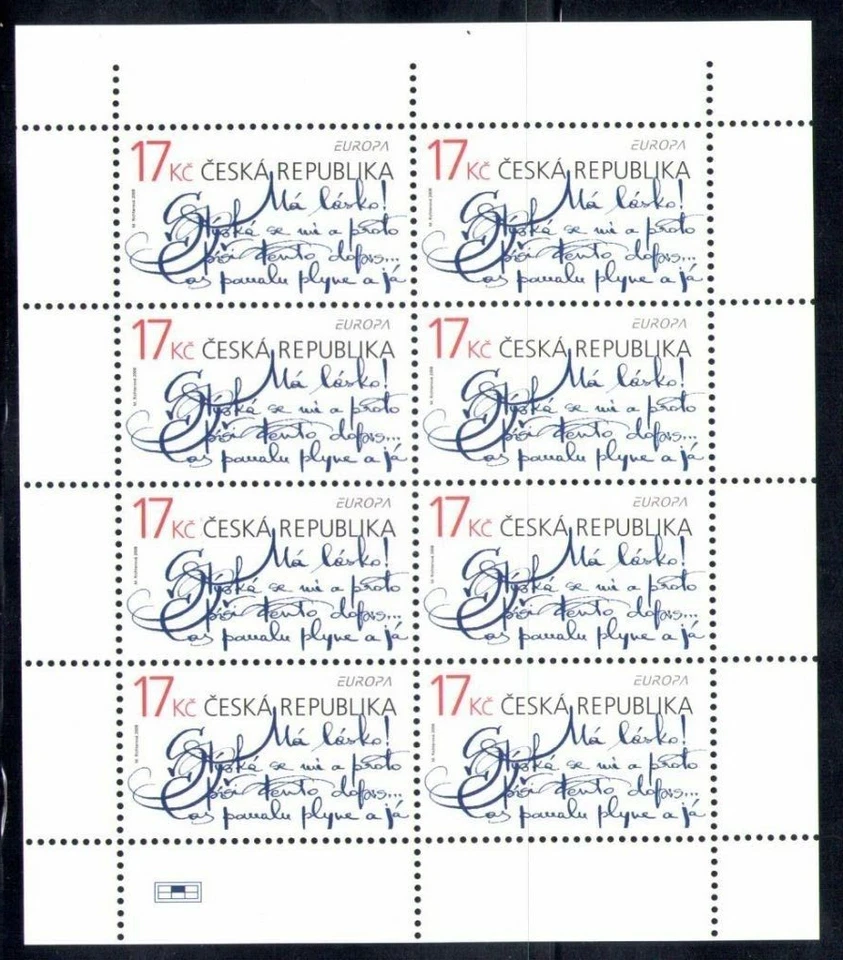 EUROPA
17 Kč ČESKÁ REPUBLIKA
Má lásko!
Stýská se mi a proto
píši tento dopis...
Čas pomalu plyne a já
EUROPA
17 Kč ČESKÁ REPUBLIKA
Má lásko!
Stýská se mi a proto
píši tento dopis...
Čas pomalu plyne a já
EUROPA
17 Kč ČESKÁ REPUBLIKA
Má lásko!
Stýská se mi a proto
píši tento dopis...
Čas pomalu plyne a já
EUROPA
17 Kč ČESKÁ REPUBLIKA
Má lásko!
Stýská se mi a proto
píši tento dopis...
Čas pomalu plyne a já
EUROPA
17 Kč ČESKÁ REPUBLIKA
Má lásko!
Stýská se mi a proto
píši tento dopis...
Čas pomalu plyne a já
EUROPA
17 Kč ČESKÁ REPUBLIKA
Má lásko!
Stýská se mi a proto
píši tento dopis...
Čas pomalu plyne a já
EUROPA
17 Kč ČESKÁ REPUBLIKA
Má lásko!
Stýská se mi a proto
píši tento dopis...
Čas pomalu plyne a já
EUROPA
17 Kč ČESKÁ REPUBLIKA
Má lásko!
Stýská se mi a proto
píši tento dopis...
Čas pomalu plyne a já